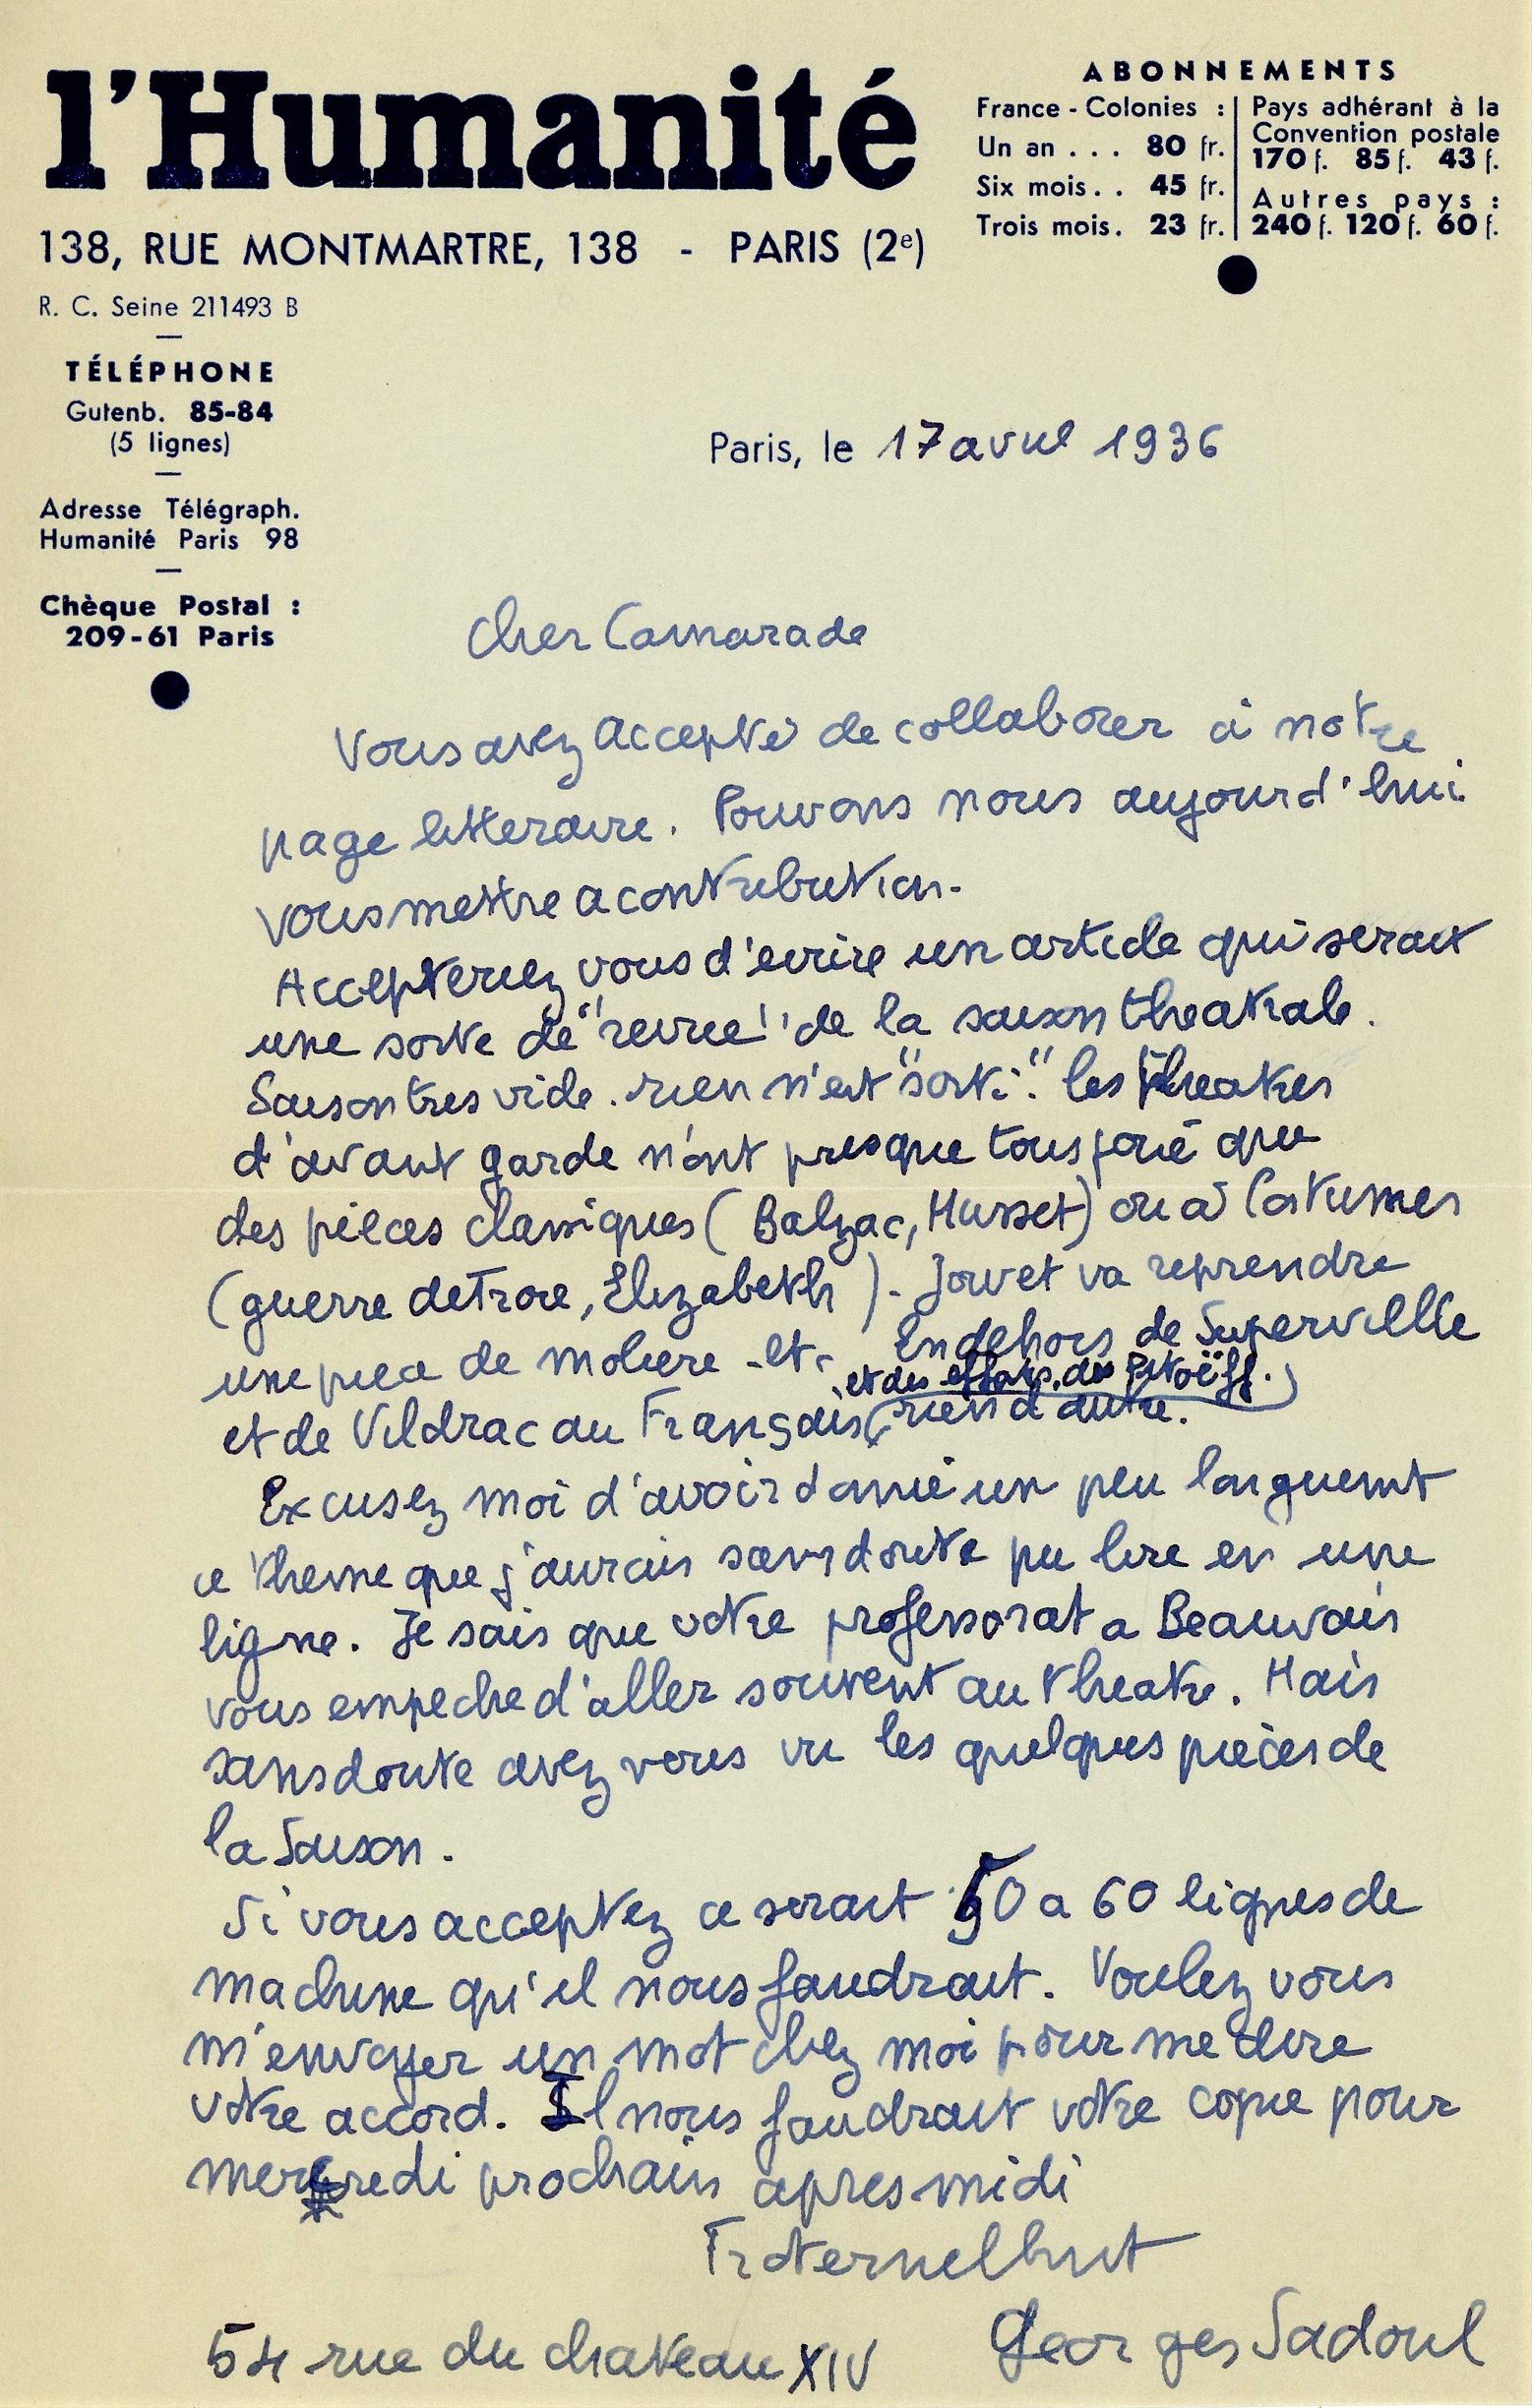 l'Humanité
138, RUE MONTMARTRE, 138 - PARIS (2e)
R. C. Seine 211493 B
TÉLÉPHONE
Gutenb. 85-84
(5 lignes)
Adresse Télégraph.
Humanité Paris 98
Chèque Postal :
209-61 Paris
ABONNEMENTS
France - Colonies :
Un an . . . 80 fr.
Six mois . . 45 fr.
Trois mois. 23 fr.
Pays adhérant à la
Convention postale
170 f. 85 f. 43 f.
Autres pays :
240 f. 120 f. 60 f.
Paris, le 17 avril 1936
Cher Camarade
Vous avez accepté de collaborer à notre
page litteraire. Pouvons nous aujourd'hui
vous mettre a contribution.
Accepteriez vous d'ecrire un article qui serait
une sorte de "revue" de la saison theatrale.
Saison tres vide. rien n'est "sorti". les theatres
d'avant garde n'ont presque tous joué que
des pièces classiques (Balzac, Musset) ou à Costumes
(guerre de Troie, Elizabeth). Jouvet va reprendre
une piece de moliere - etc En dehors de Supervielle
et des efforts des Pitoëff.
et de Vildrac au Français rien d'autre.
Excusez moi d'avoir donné un peu longuemt
ce theme que j'aurais sans doute pu lire en une
ligne. Je sais que votre professorat a Beauvais
vous empeche d'aller souvent au theatre. Mais
sans doute avez vous vu les quelques pièces de
la Saison.
Si vous acceptez ce serait 50 a 60 lignes de
machine qu'il nous faudrait. Voulez vous
m'envoyer un mot chez moi pour me dire
votre accord. Il nous faudrait votre copie pour
mercredi prochain apres midi
Fraternellmt
Georges Sadoul
54 rue du chateau XIV